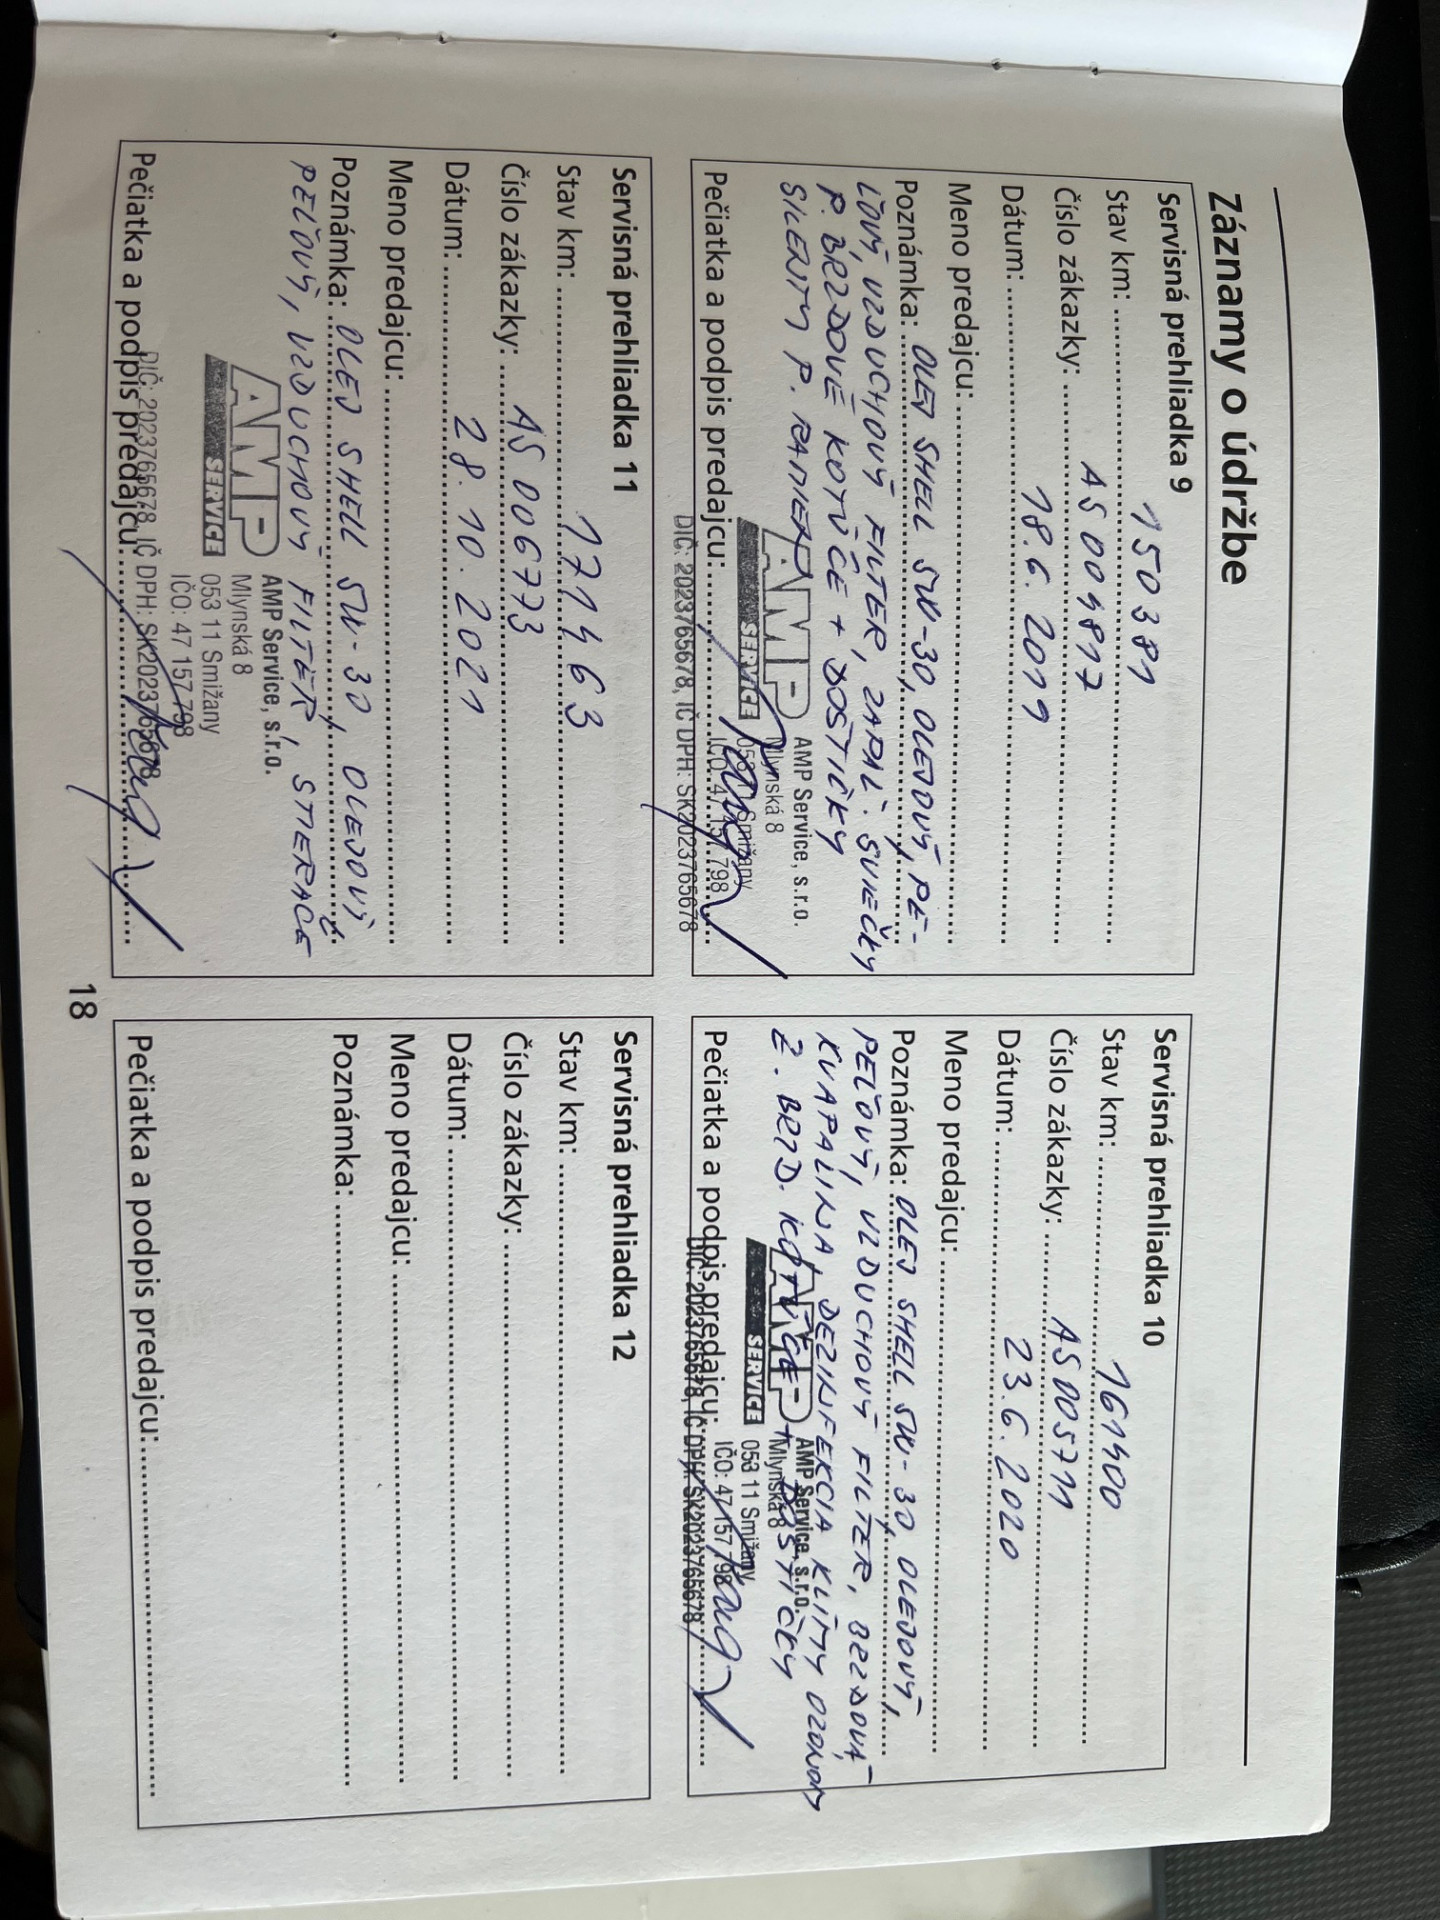 Záznamy o údržbe
Servisná prehliadka 9
Stav km: 150381
Číslo zákazky: AS004817
Dátum: 18.6.2019
Meno predajcu:
Poznámka: OLEJ SHELL 5W-30, OLEJOVÝ, PE-
ĽOVÝ, VZDUCHOVÝ FILTER, ZAPAĽ. SVIEČKY
P. BRZDOVÉ KOTÚČE + DOŠTIČKY
SILENTY P. RAMIEN
AMP SERVICE
AMP Service, s.r.o.
Mlynská 8
053 11 Smižany
IČO: 47 157 798
Pečiatka a podpis predajcu:
DIČ: 2023765678, IČ DPH: SK2023765678
Servisná prehliadka 10
Stav km: 161400
Číslo zákazky: AS005711
Dátum: 23.6.2020
Meno predajcu:
Poznámka: OLEJ SHELL 5W-30, OLEJOVÝ,
PEĽOVÝ, VZDUCHOVÝ FILTER, BRZDOVÁ
KVAPALINA, DEZINFEKCIA KLÍMY OZÓNOM
Z. BRZD. KOTÚČE + DOŠTIČKY
AMP SERVICE
AMP Service, s.r.o.
Mlynská 8
053 11 Smižany
IČO: 47 157 798
Pečiatka a podpis predajcu:
DIČ: 2023765678, IČ DPH: SK2023765678
Servisná prehliadka 11
Stav km: 171463
Číslo zákazky: AS006773
Dátum: 28.10.2021
Meno predajcu:
Poznámka: OLEJ SHELL 5W-30, OLEJOVÝ
PEĽOVÝ, VZDUCHOVÝ FILTER, STIERAČE
AMP SERVICE
AMP Service, s.r.o.
Mlynská 8
053 11 Smižany
IČO: 47 157 798
DIČ: 2023765678, IČ DPH: SK2023765678
Pečiatka a podpis predajcu:
Servisná prehliadka 12
Stav km:
Číslo zákazky:
Dátum:
Meno predajcu:
Poznámka:
Pečiatka a podpis predajcu:
18